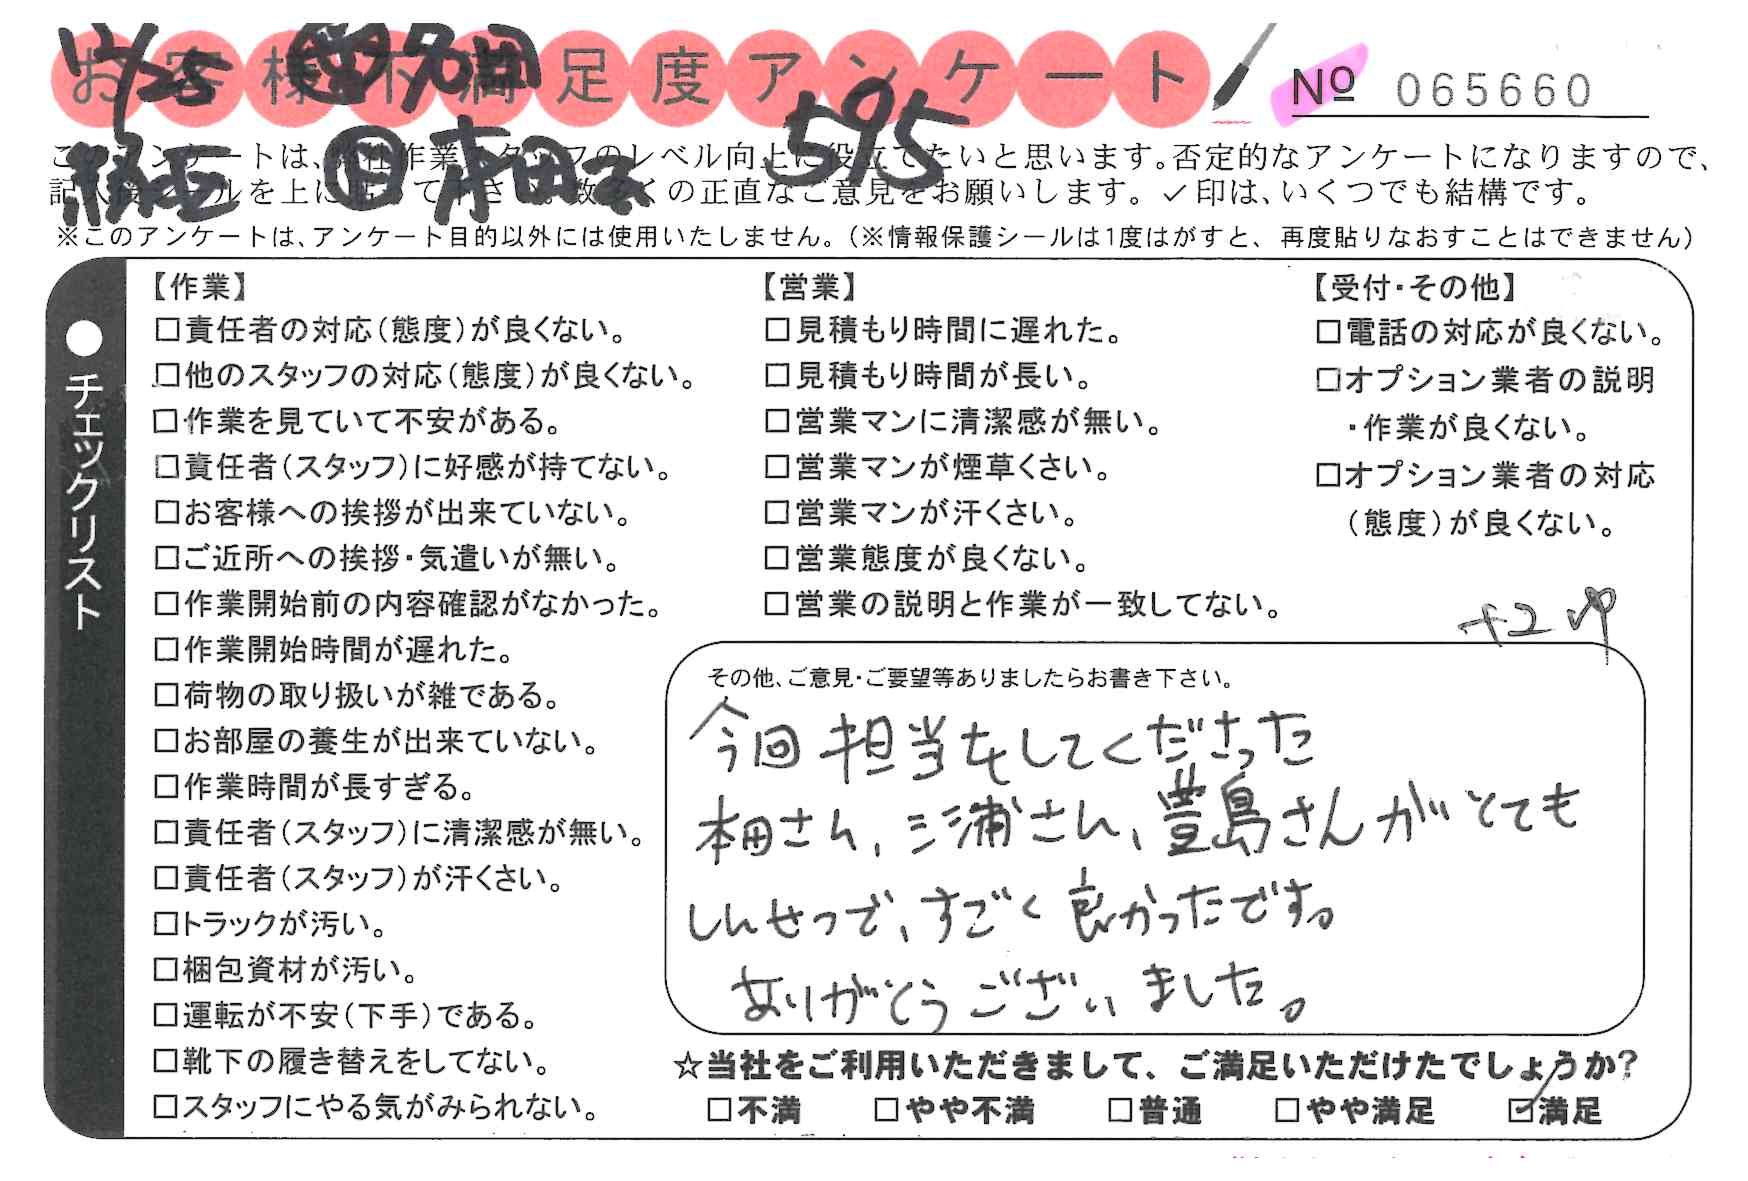 お客様不満足度アンケート
12/25
595
No 065660
このアンケートは、弊社作業スタッフのレベル向上に役立てたいと思います。否定的なアンケートになりますので、
記入後シールを上に貼って下さい。数多くの正直なご意見をお願いします。✓印は、いくつでも結構です。
本田
※このアンケートは、アンケート目的以外には使用いたしません。(※情報保護シールは1度はがすと、再度貼りなおすことはできません)
●チェックリスト
【作業】
□責任者の対応(態度)が良くない。
□他のスタッフの対応(態度)が良くない。
□作業を見ていて不安がある。
□責任者(スタッフ)に好感が持てない。
□お客様への挨拶が出来ていない。
□ご近所への挨拶・気遣いが無い。
□作業開始前の内容確認がなかった。
□作業開始時間が遅れた。
□荷物の取り扱いが雑である。
□お部屋の養生が出来ていない。
□作業時間が長すぎる。
□責任者(スタッフ)に清潔感が無い。
□責任者(スタッフ)が汗くさい。
□トラックが汚い。
□梱包資材が汚い。
□運転が不安(下手)である。
□靴下の履き替えをしてない。
□スタッフにやる気がみられない。
【営業】
□見積もり時間に遅れた。
□見積もり時間が長い。
□営業マンに清潔感が無い。
□営業マンが煙草くさい。
□営業マンが汗くさい。
□営業態度が良くない。
□営業の説明と作業が一致してない。
【受付・その他】
□電話の対応が良くない。
□オプション業者の説明
・作業が良くない。
□オプション業者の対応
(態度)が良くない。
+2
その他、ご意見・ご要望等ありましたらお書き下さい。
今回担当をしてくださった
本田さん、三浦さん、豊島さんがとても
しんせつで、すごく良かったです。
ありがとうございました。
☆当社をご利用いただきまして、ご満足いただけたでしょうか?
□不満 □やや不満 □普通 □やや満足 ☑満足